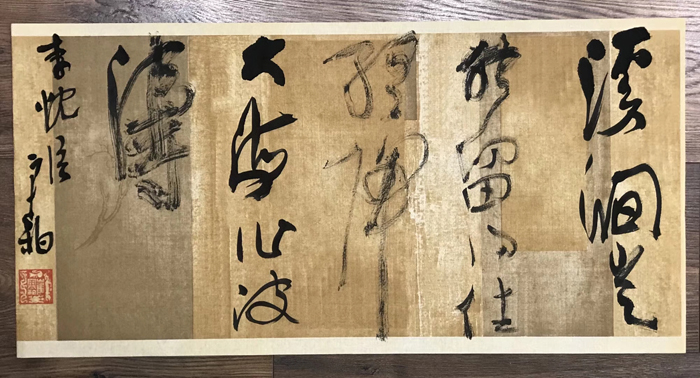 溪涧岂
能留得住
終歸
大海作波
濤
李忱